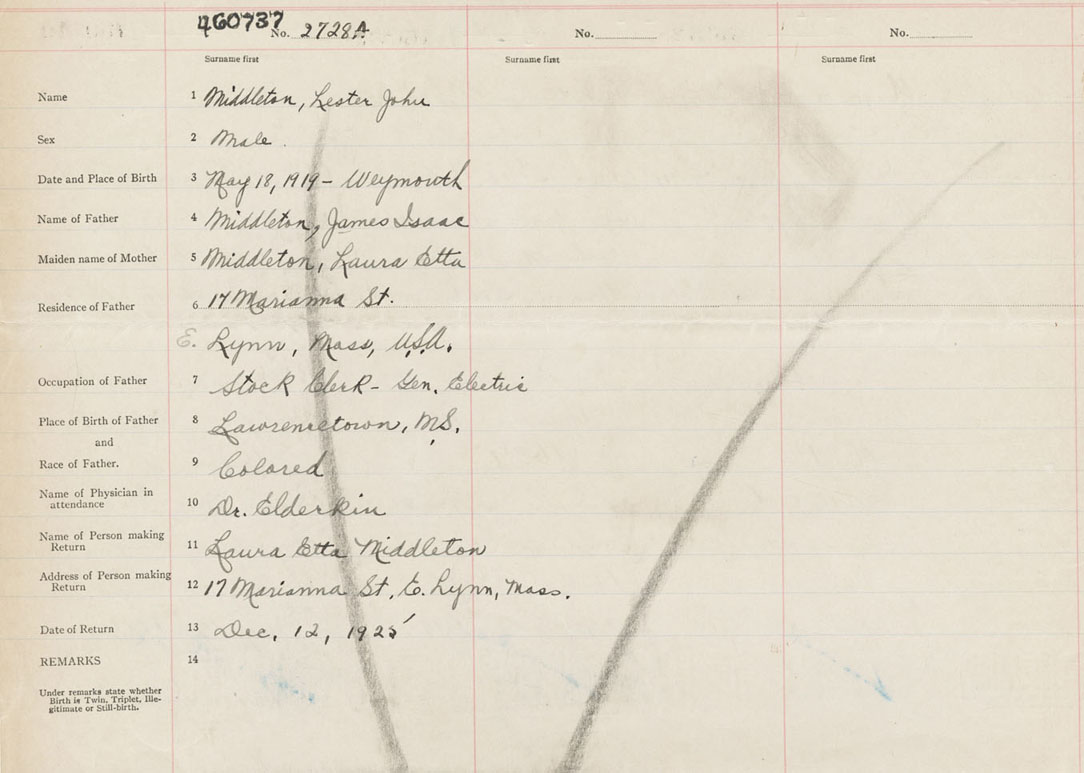 460737
No. 2728A No. No.
Surname first Surname first Surname first
Name 1 Middleton, Lester John
Sex 2 Male.
Date and Place of Birth 3 May 18, 1919 - Weymouth
Name of Father 4 Middleton, James Isaac
Maiden name of Mother 5 Middleton, Laura Etta
Residence of Father 6 17 Marianna St.
E. Lynn, Mass, U.S.A.
Occupation of Father 7 Stock Clerk - Gen. Electric
Place of Birth of Father 8 Lawrencetown, N.S.
and
Race of Father. 9 Colored
Name of Physician in
attendance 10 Dr. Elderkin
Name of Person making
Return 11 Laura Etta Middleton
Address of Person making
Return 12 17 Marianna St. E. Lynn, Mass.
Date of Return 13 Dec, 12, 1925
REMARKS 14
Under remarks state whether
Birth is Twin, Triplet, Ille-
gitimate or Still-birth.